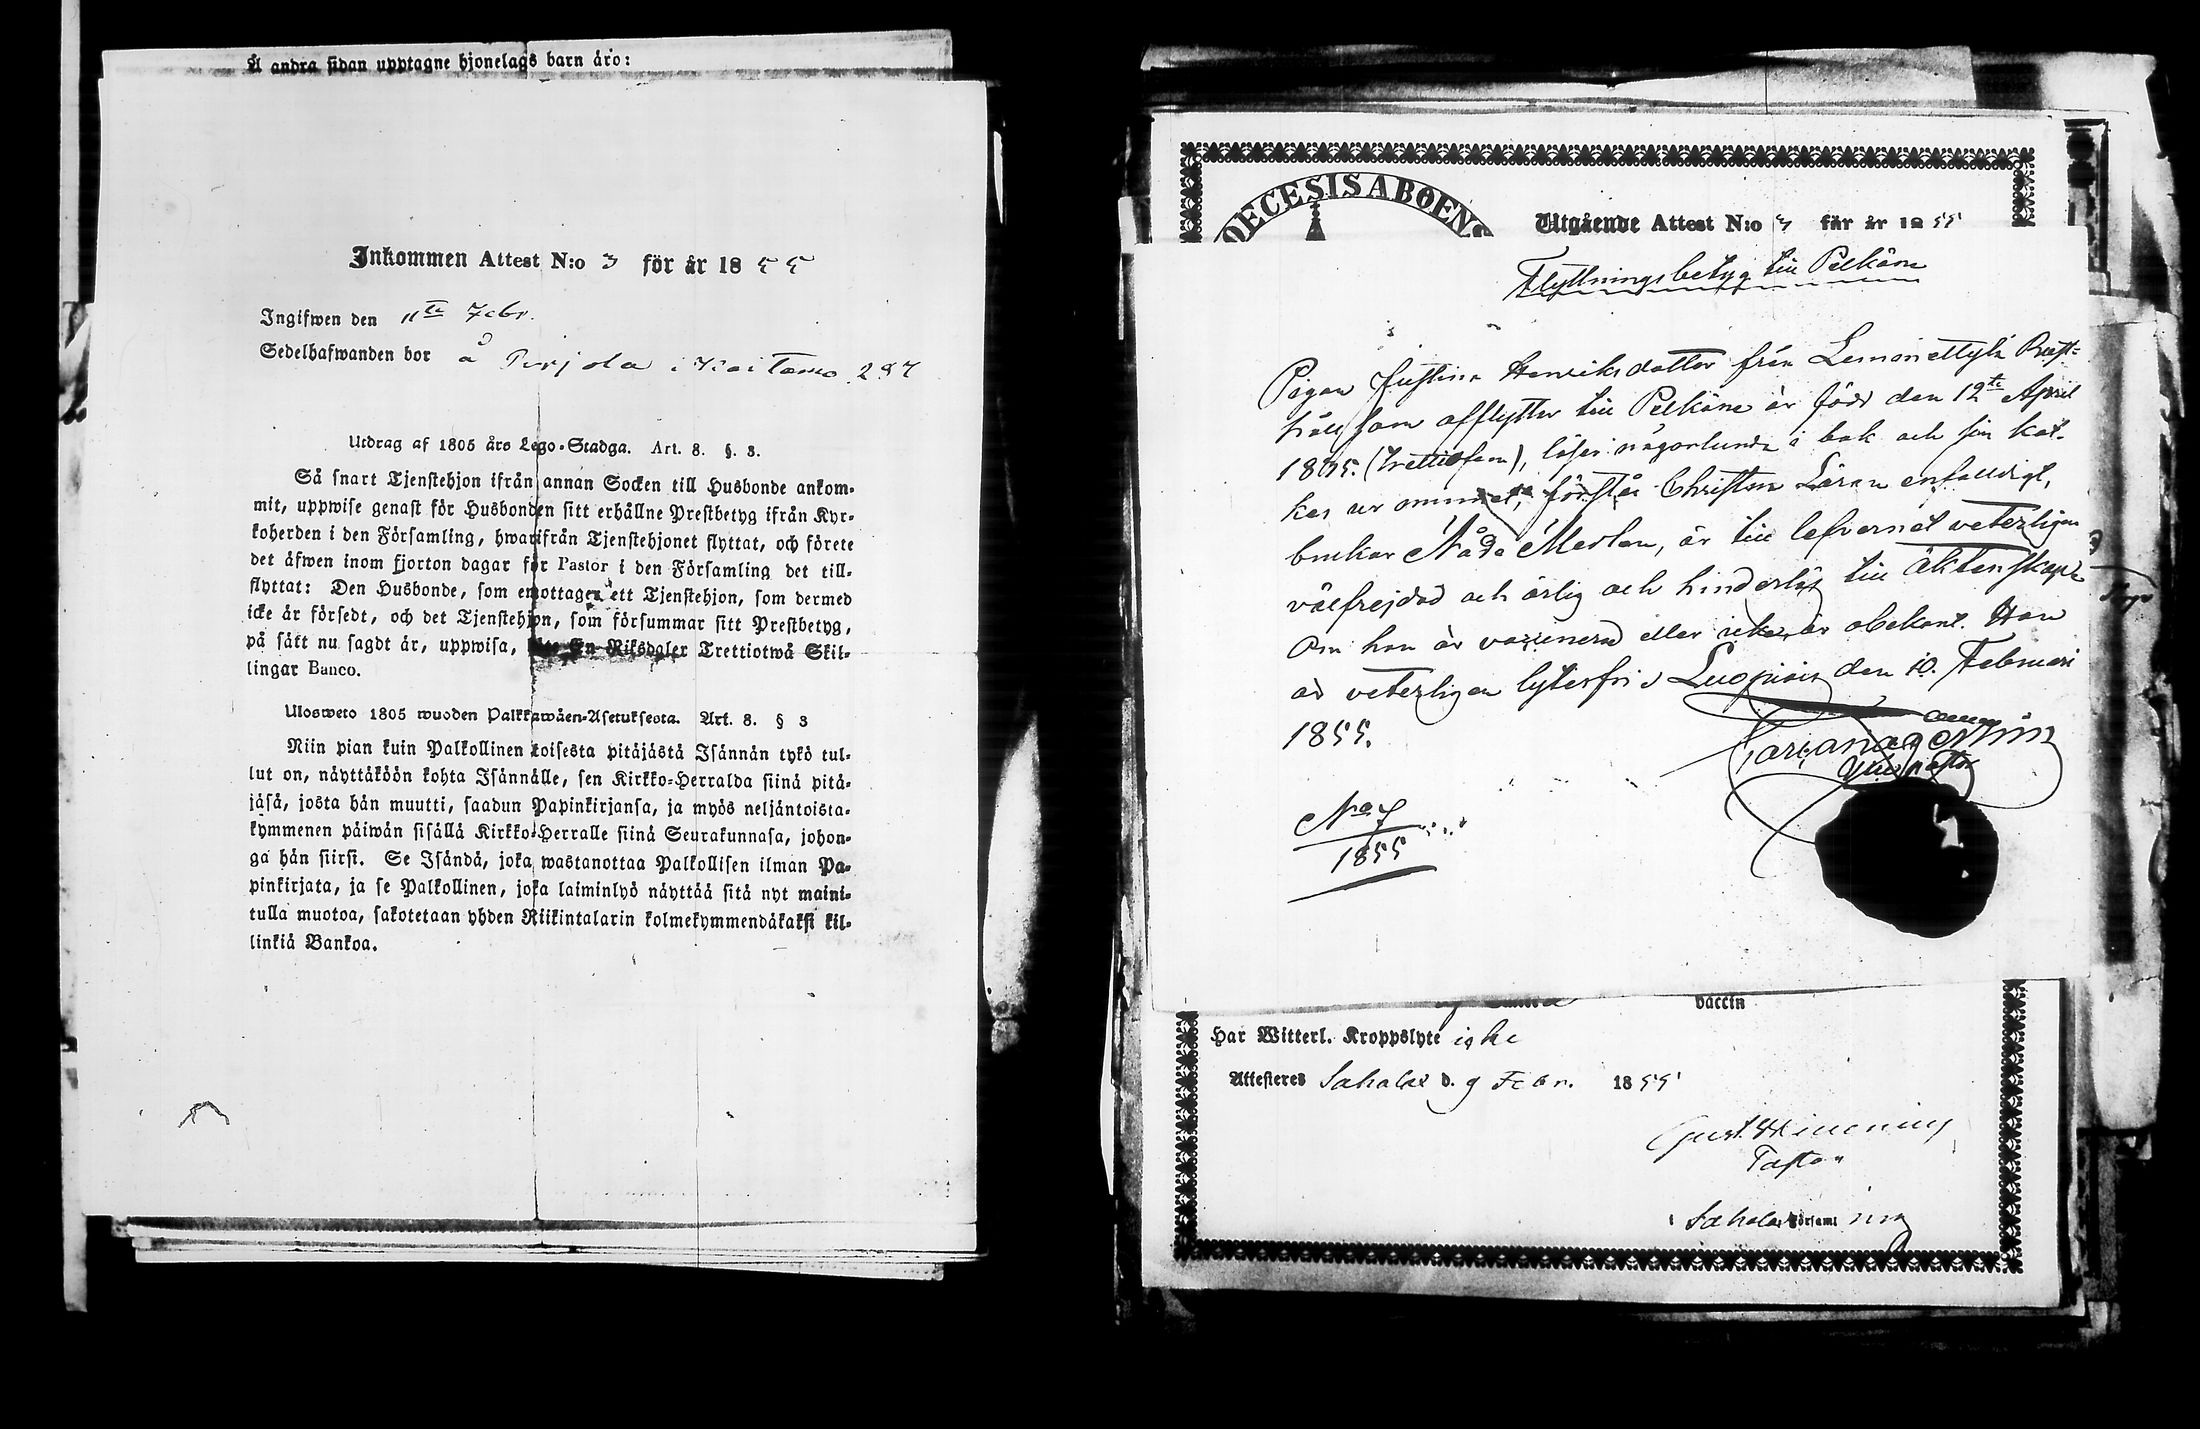 Å andra sidan upptagne hjonelags barn äro:
Inkommen Attest N:o 3 för år 1855
Ingifwen den 11te Febr.
Sedelhafwanden bor å Purjola i Kaitamo 287
Utdrag af 1805 års Lego-Stadga. Art. 8. §. 3.
Så snart Tjenstehjon ifrån annan Socken till Husbonde ankom-
mit, uppwise genast för Husbonden sitt erhållne Prestbetyg ifrån Kyr-
koherden i den Församling, hwarifrån Tjenstehjonet flyttat, och förete
det äfwen inom fjorton dagar för Pastor i den Församling det till-
flyttat: Den Husbonde, som emottager ett Tjenstehjon, som dermed
icke är försedt, och det Tjenstehjon, som försummar sitt Prestbetyg,
på sätt nu sagdt är, uppwisa, En Riksdaler Trettiotwå Skil-
lingar Banco.
Ulosweto 1805 wuoden Palkkawäen-Asetuksesta. Art. 8. § 3
Niin pian kuin Palkollinen toisesta pitäjästä Isännän tykö tul-
lut on, näyttäköön kohta Isännälle, sen Kirkko-Herralda siinä pitä-
jäsä, josta hän muutti, saadun Papinkirjansa, ja myös neljäntoista-
kymmenen päiwän sisällä Kirkko-Herralle siinä Seurakunnasa, johon-
ga hän siirsi. Se Isändä, joka wastanottaa Palkollisen ilman Pa-
pinkirjata, ja se Palkollinen, joka laiminlyö näyttää sitä nyt maini-
tulla muotoa, sakotetaan yhden Riikintalarin kolmekymmendäkaksi kil-
linkiä Bankoa.
OECESIS ABOENS
Utgående Attest N:o 3 för år 1855
Flyttningsbetyg till Pelkäne
Pigan Justina Henriksdotter från Lemonettylä Prest-
håll som afflyttar till Pelkäne är född den 12te April
1835. (trettiofem), läser någorlunda i bok och sin Kat.
kes ur minnet, förstår Christna Läran enfalldigt,
brukar Nåde Medlen, är till lefvernet veterligen
välfrejdad och ärlig och hinderlös till äktenskap.
Om hon är vaccinerad eller icke, är obekant. Hon
är veterligen lytesfri. Luopiois den 10. Februari
1855.
No 7
1855
vaccin
Har Witterl. Kroppslyte icke
Attesteres Sahalax d. 9 Febr. 1855
Pastor
i Sahalax Församling